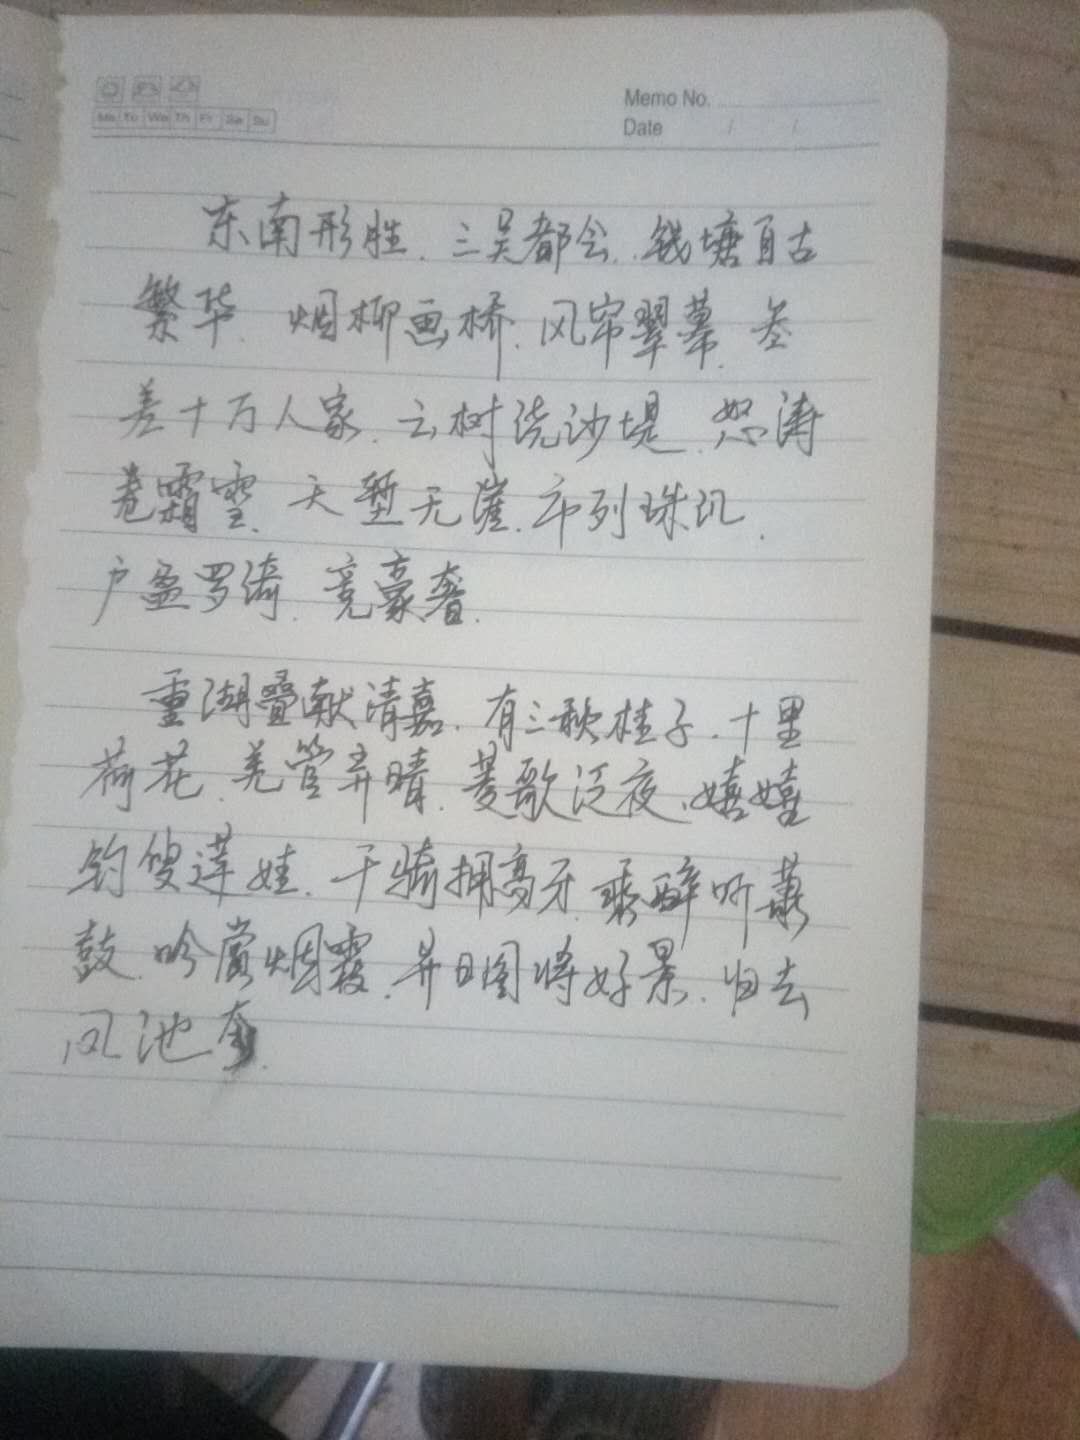 Mo Tu We Th Fr Sa Su
Memo No.
Date / /
东南形胜.三吴都会.钱塘自古
繁华.烟柳画桥.风帘翠幕.参
差十万人家.云树浇沙堤.怒涛
卷霜雪.天堑无崖.市列珠玑.
户盈罗绮.竞豪奢.
重湖叠献清嘉.有三秋桂子.十里
荷花.羌管弄晴.菱歌泛夜.嬉嬉
钓叟莲娃.千骑拥高牙.乘醉听萧
鼓.吟赏烟霞.异日图将好景.归去
凤池夸.